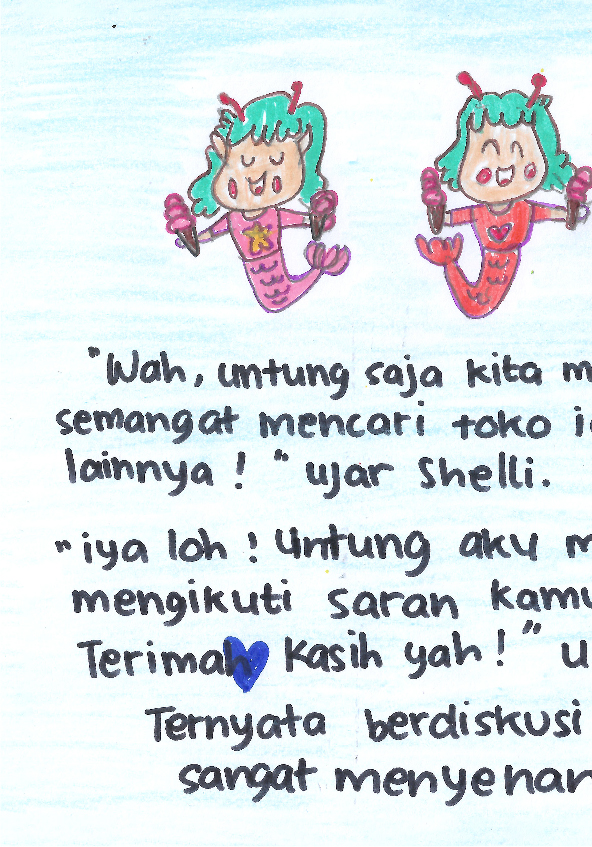 "Wah, untung saja kita m
semangat mencari toko i
lainnya ! " ujar Shelli.
"iya loh ! Untung aku m
mengikuti saran kamu
Terimah Kasih yah ! " u
Ternyata berdiskusi
sangat menyenan